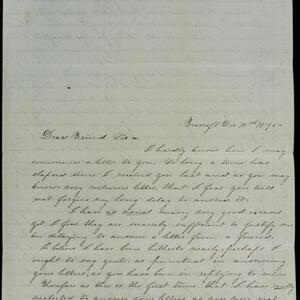 Dec 10th
Dear Friend Sir
I hardly know how I may
commence a letter to you. So long a time has
elapsed since I received your last and as you may
know very welcome letter, that I fear you will
not forgive my long delay to answer it.
I have as usual many good excuses
yet I fear they are merely sufficient to justify me
in delaying to answer a letter from a friend
I have been hitherto nearly, perhaps I
ought to say quite as punctual in answering
your letters, as you have been in replying to mine
Therefore as this is the first time that I have really
neglected to answer your letters